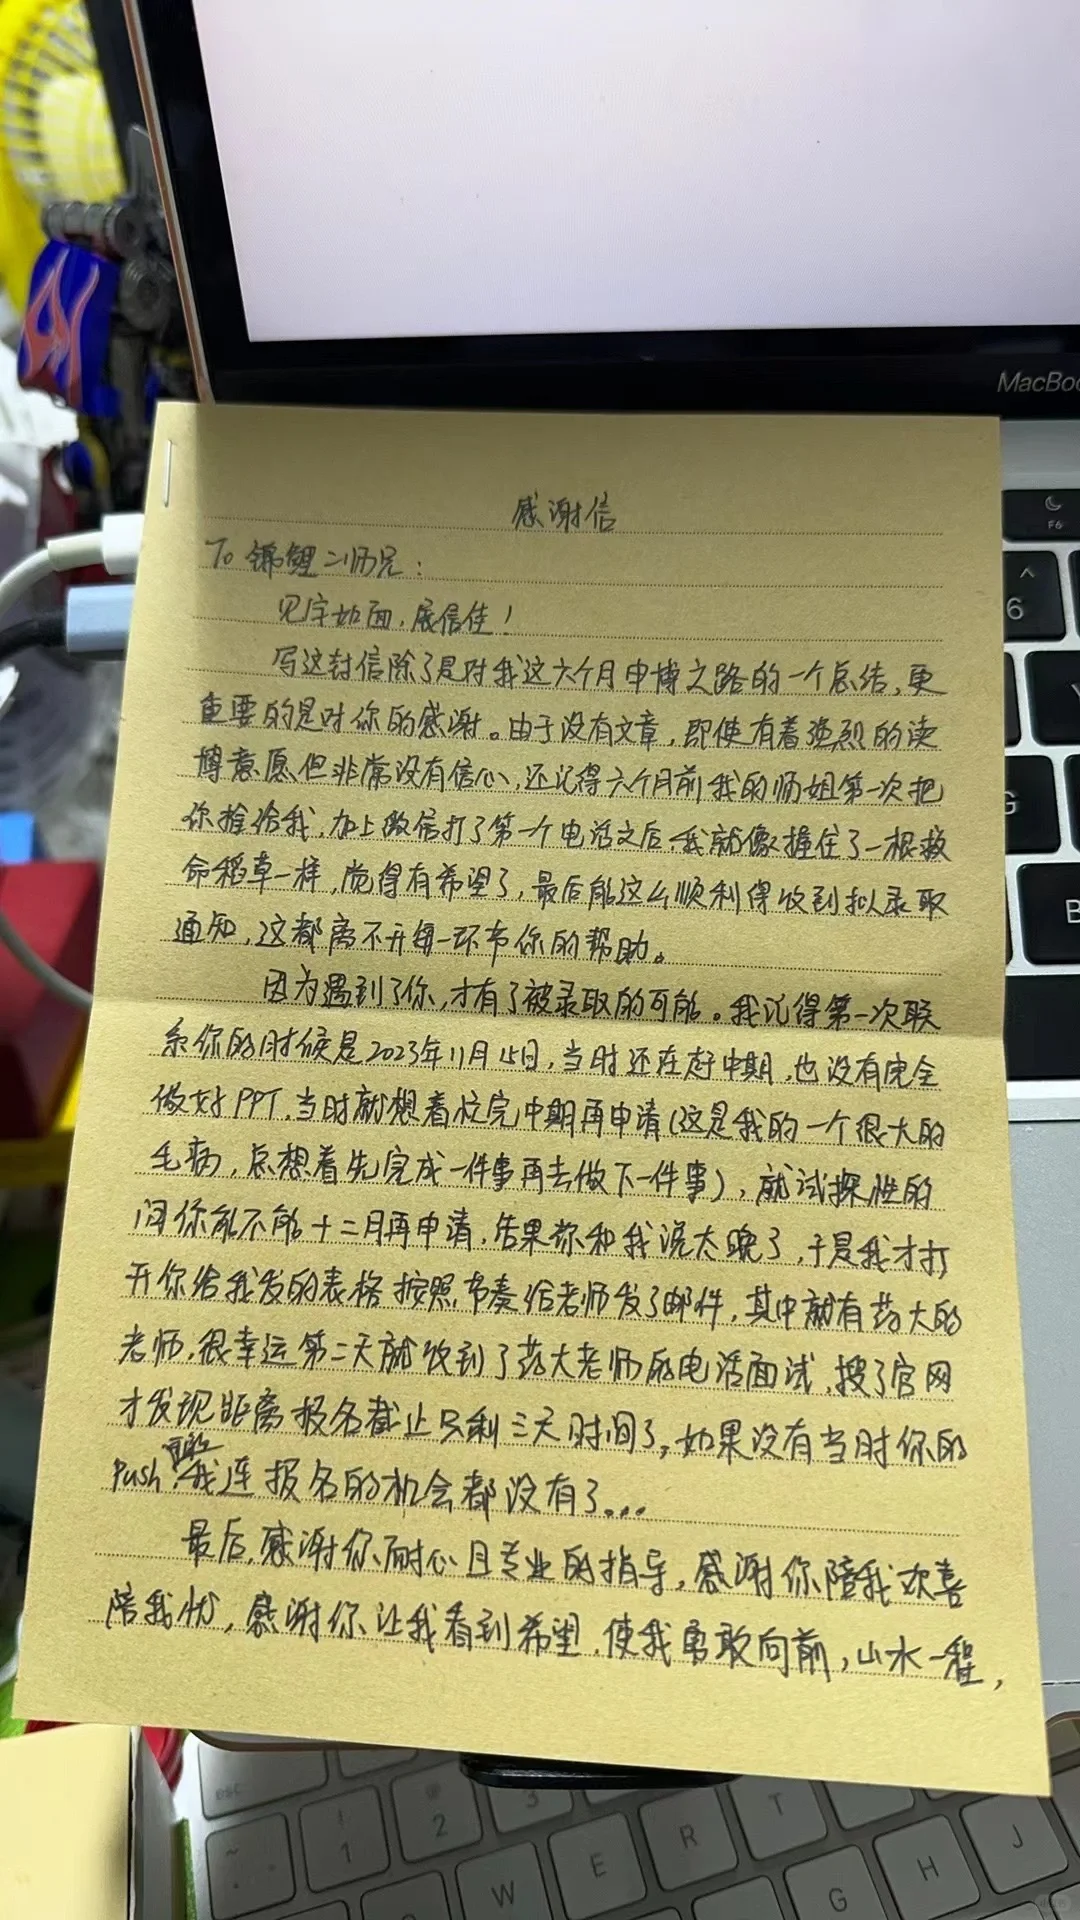 MacBoo
感谢信
To 锦鲤二师兄：
见字如面，展信佳！
写这封信除了是对我这六个月申博之路的一个总结，更
重要的是对你的感谢。由于没有文章，即使有着强烈的读
博意愿但非常没有信心，还记得六个月前我的师姐第一次把
你推给我，加上微信打了第一个电话之后，我就像撞住了一根救
命稻草一样，觉得有希望了，最后能这么顺利得收到拟录取
通知，这都离不开每一环节你的帮助。
因为遇到了你，才有了被录取的可能。我记得第一次联
系你的时候是2023年11月15日，当时还在赶中期，也没有完全
做好PPT，当时就想着忙完中期再申请（这是我的一个很大的
毛病，总想着先完成一件事再去做下一件事），就试探性的
问你能不能十二月再申请，结果你和我说太晚了，于是我才打
开你给我发的表格按照节奏给老师发了邮件，其中就有药大的
老师，很幸运第二天就收到了药大老师的电话面试，搜了官网
才发现距离报名截止只剩三天时间了，如果没有当时你的
Push，我连报名的机会都没有了...
最后，感谢你耐心且专业的指导，感谢你陪我欢喜
陪我忧，感谢你让我看到希望，使我勇敢向前，山水一程，
F6
6
esc
1
2
3
W
E
R
T
G
H
J